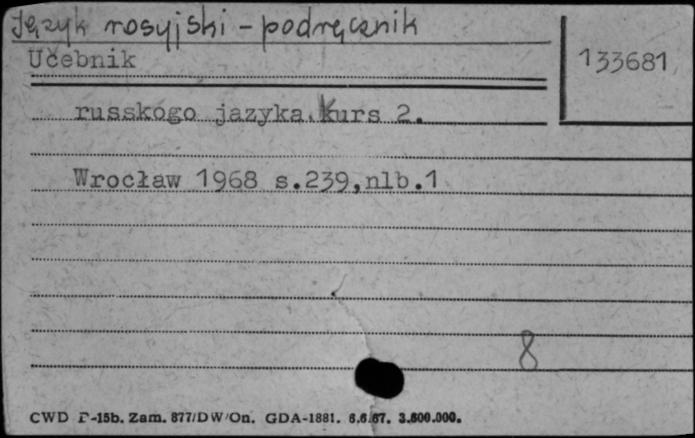 Język rosyjski - podręcznik
Učebnik
133681
russkogo jazyka. Kurs 2.
Wrocław 1968 s.239,nlb.1
8
CWD P-15b. Zam. 877/DW/On. GDA-1881. 6.6.67. 3.600.000.